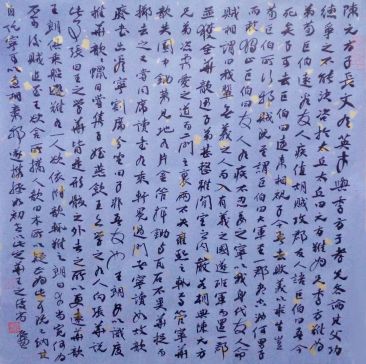 陳元方子長文有英才與季方子孝先各論其父功
德爭之不能決咨於太丘太丘曰元方難為兄季方難為弟
荀巨伯遠看友人疾值胡賊攻郡友人語巨伯曰吾今
死矣子可去巨伯曰遠來相視子令吾去敗義以求生豈
荀巨伯所行邪賊既至謂巨伯曰大軍至一郡盡空汝何男子
而敢獨止巨伯曰友人有疾不忍委之寧以我身代友人命
賊相謂曰我輩無義之人而入有義之國遂班軍而還一郡
並獲全華歆遇子弟甚整雖閒室之內嚴若朝典陳元方
兄弟恣柔愛之道而二門之裏兩不失雍熙之軌焉管寧華
歆共園中鋤菜見地有片金管揮鋤與瓦石不異華捉而
擲去之又嘗同席讀書有乘軒冕過門者寧讀如故歆
廢書出看寧割席分坐曰子非吾友也王朗每以識度
推華歆歆蠟日嘗集子姪燕飲王亦學之有人向張華說
此事張曰王之學華皆是形骸之外去之所以更遠華歆
王朗俱乘船避難有一人欲依附歆輒難之朗曰幸尚寬何為
不可後賊追至王欲舍所攜人歆曰本所以疑正為此耳既以納其
自託寧可以急相棄邪遂攜拯如初世以此定華王之優劣